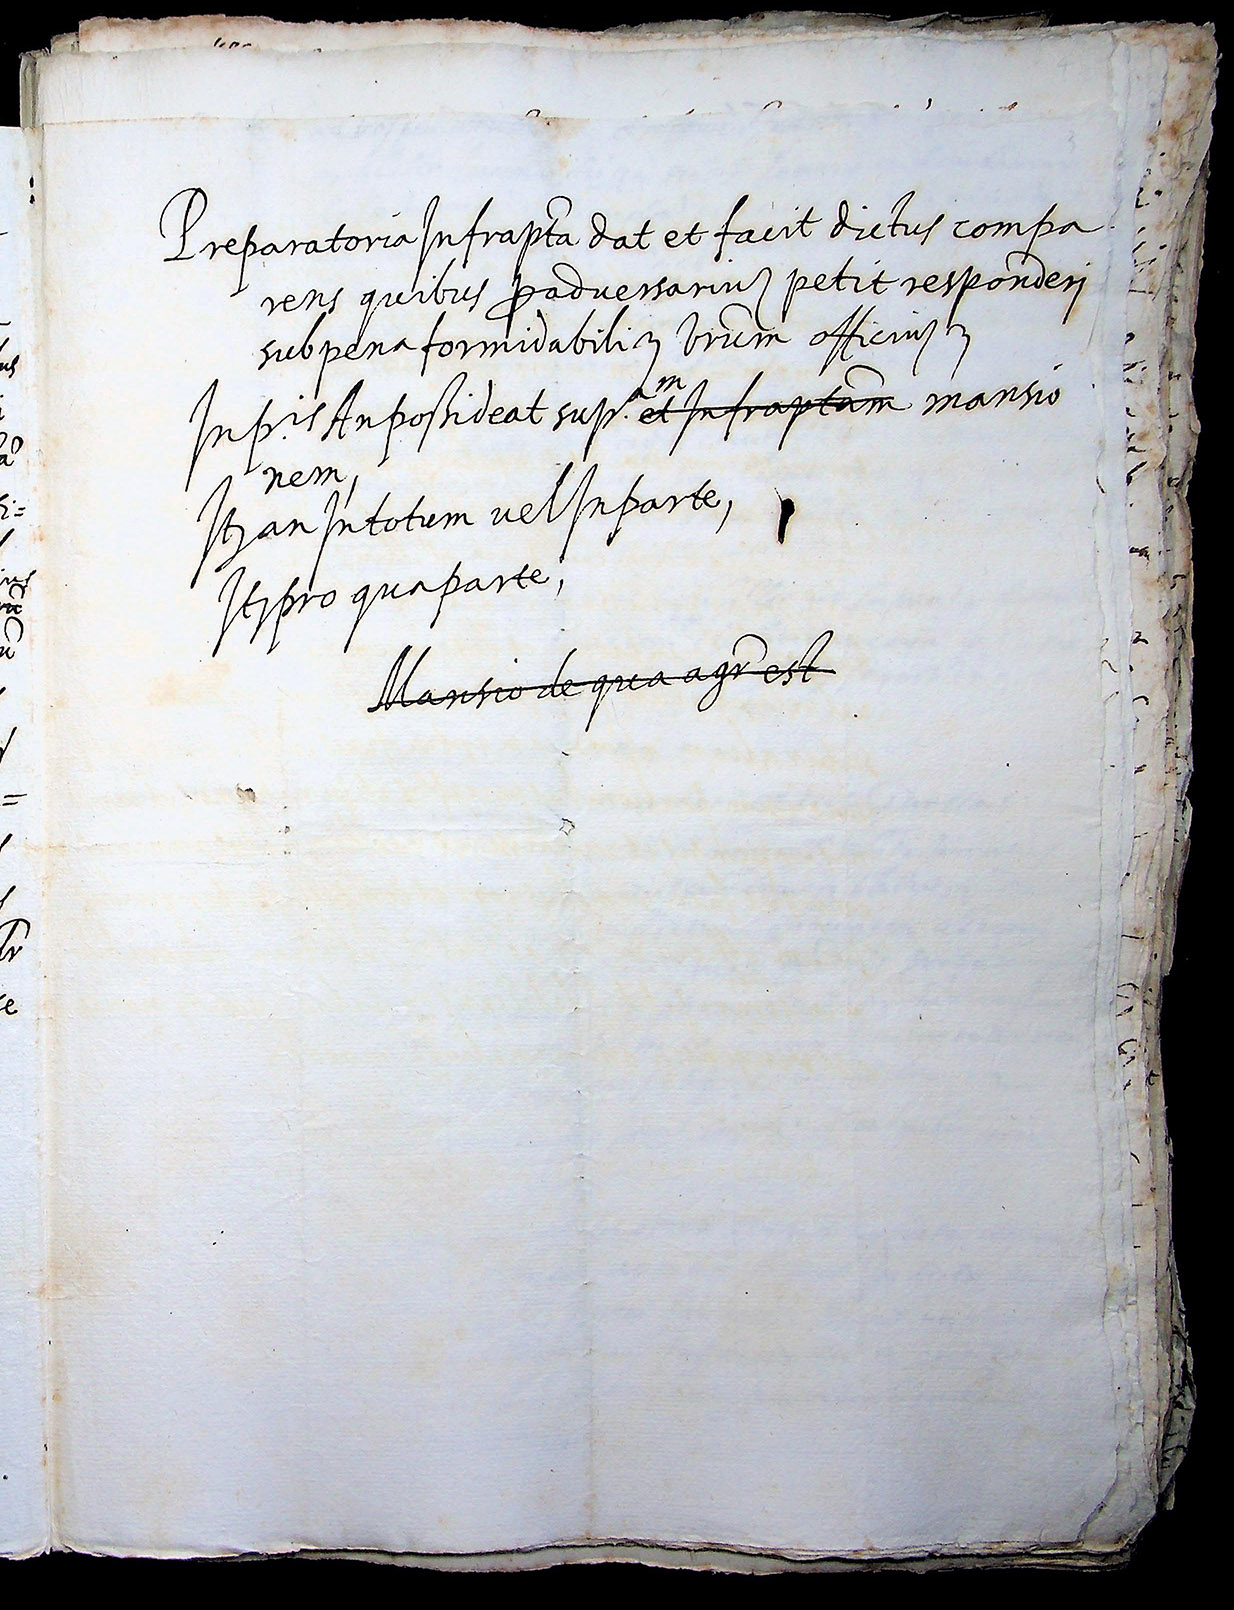 Preparatoria Infrapta dat et facit dictus compa
rens quibus p adversarium petit responderj
sub pena formidabili
Inp.is An possideat sup.am et Infraptam mansio
nem,
Itz an In totum vel In parte,
Itz pro qua parte,
Mansio de qua agr est